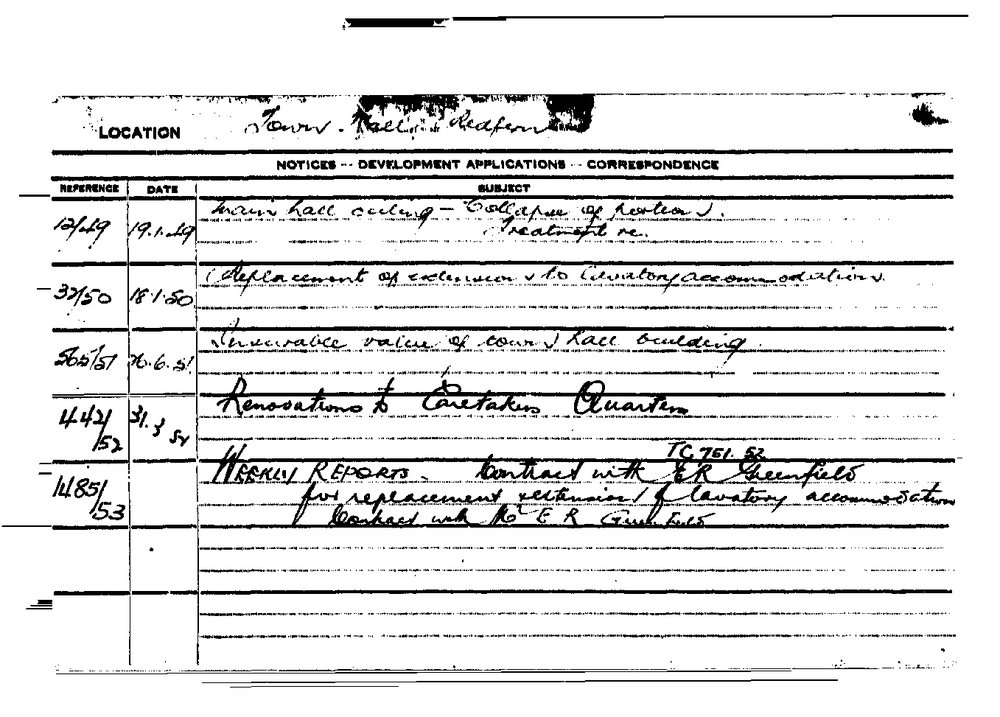 LOCATION Town Hall, Redfern
NOTICES -- DEVELOPMENT APPLICATIONS -- CORRESPONDENCE
REFERENCE DATE SUBJECT
12/49 19.1.49 Main hall ceiling - Collapse of portions.
Treatment re.
32/50 18.1.50 Replacement of extensions to lavatory accommodation.
565/51 26.6.51 Insurable value of town hall building.
442/52 31.3.52 Renovations to Caretakers Quarters
TC 751. 52
1485/53 WEEKLY REPORTS. Contract with E R Greenfield
for replacement extension of lavatory accommodation
Contract with Mr E R Greenfield